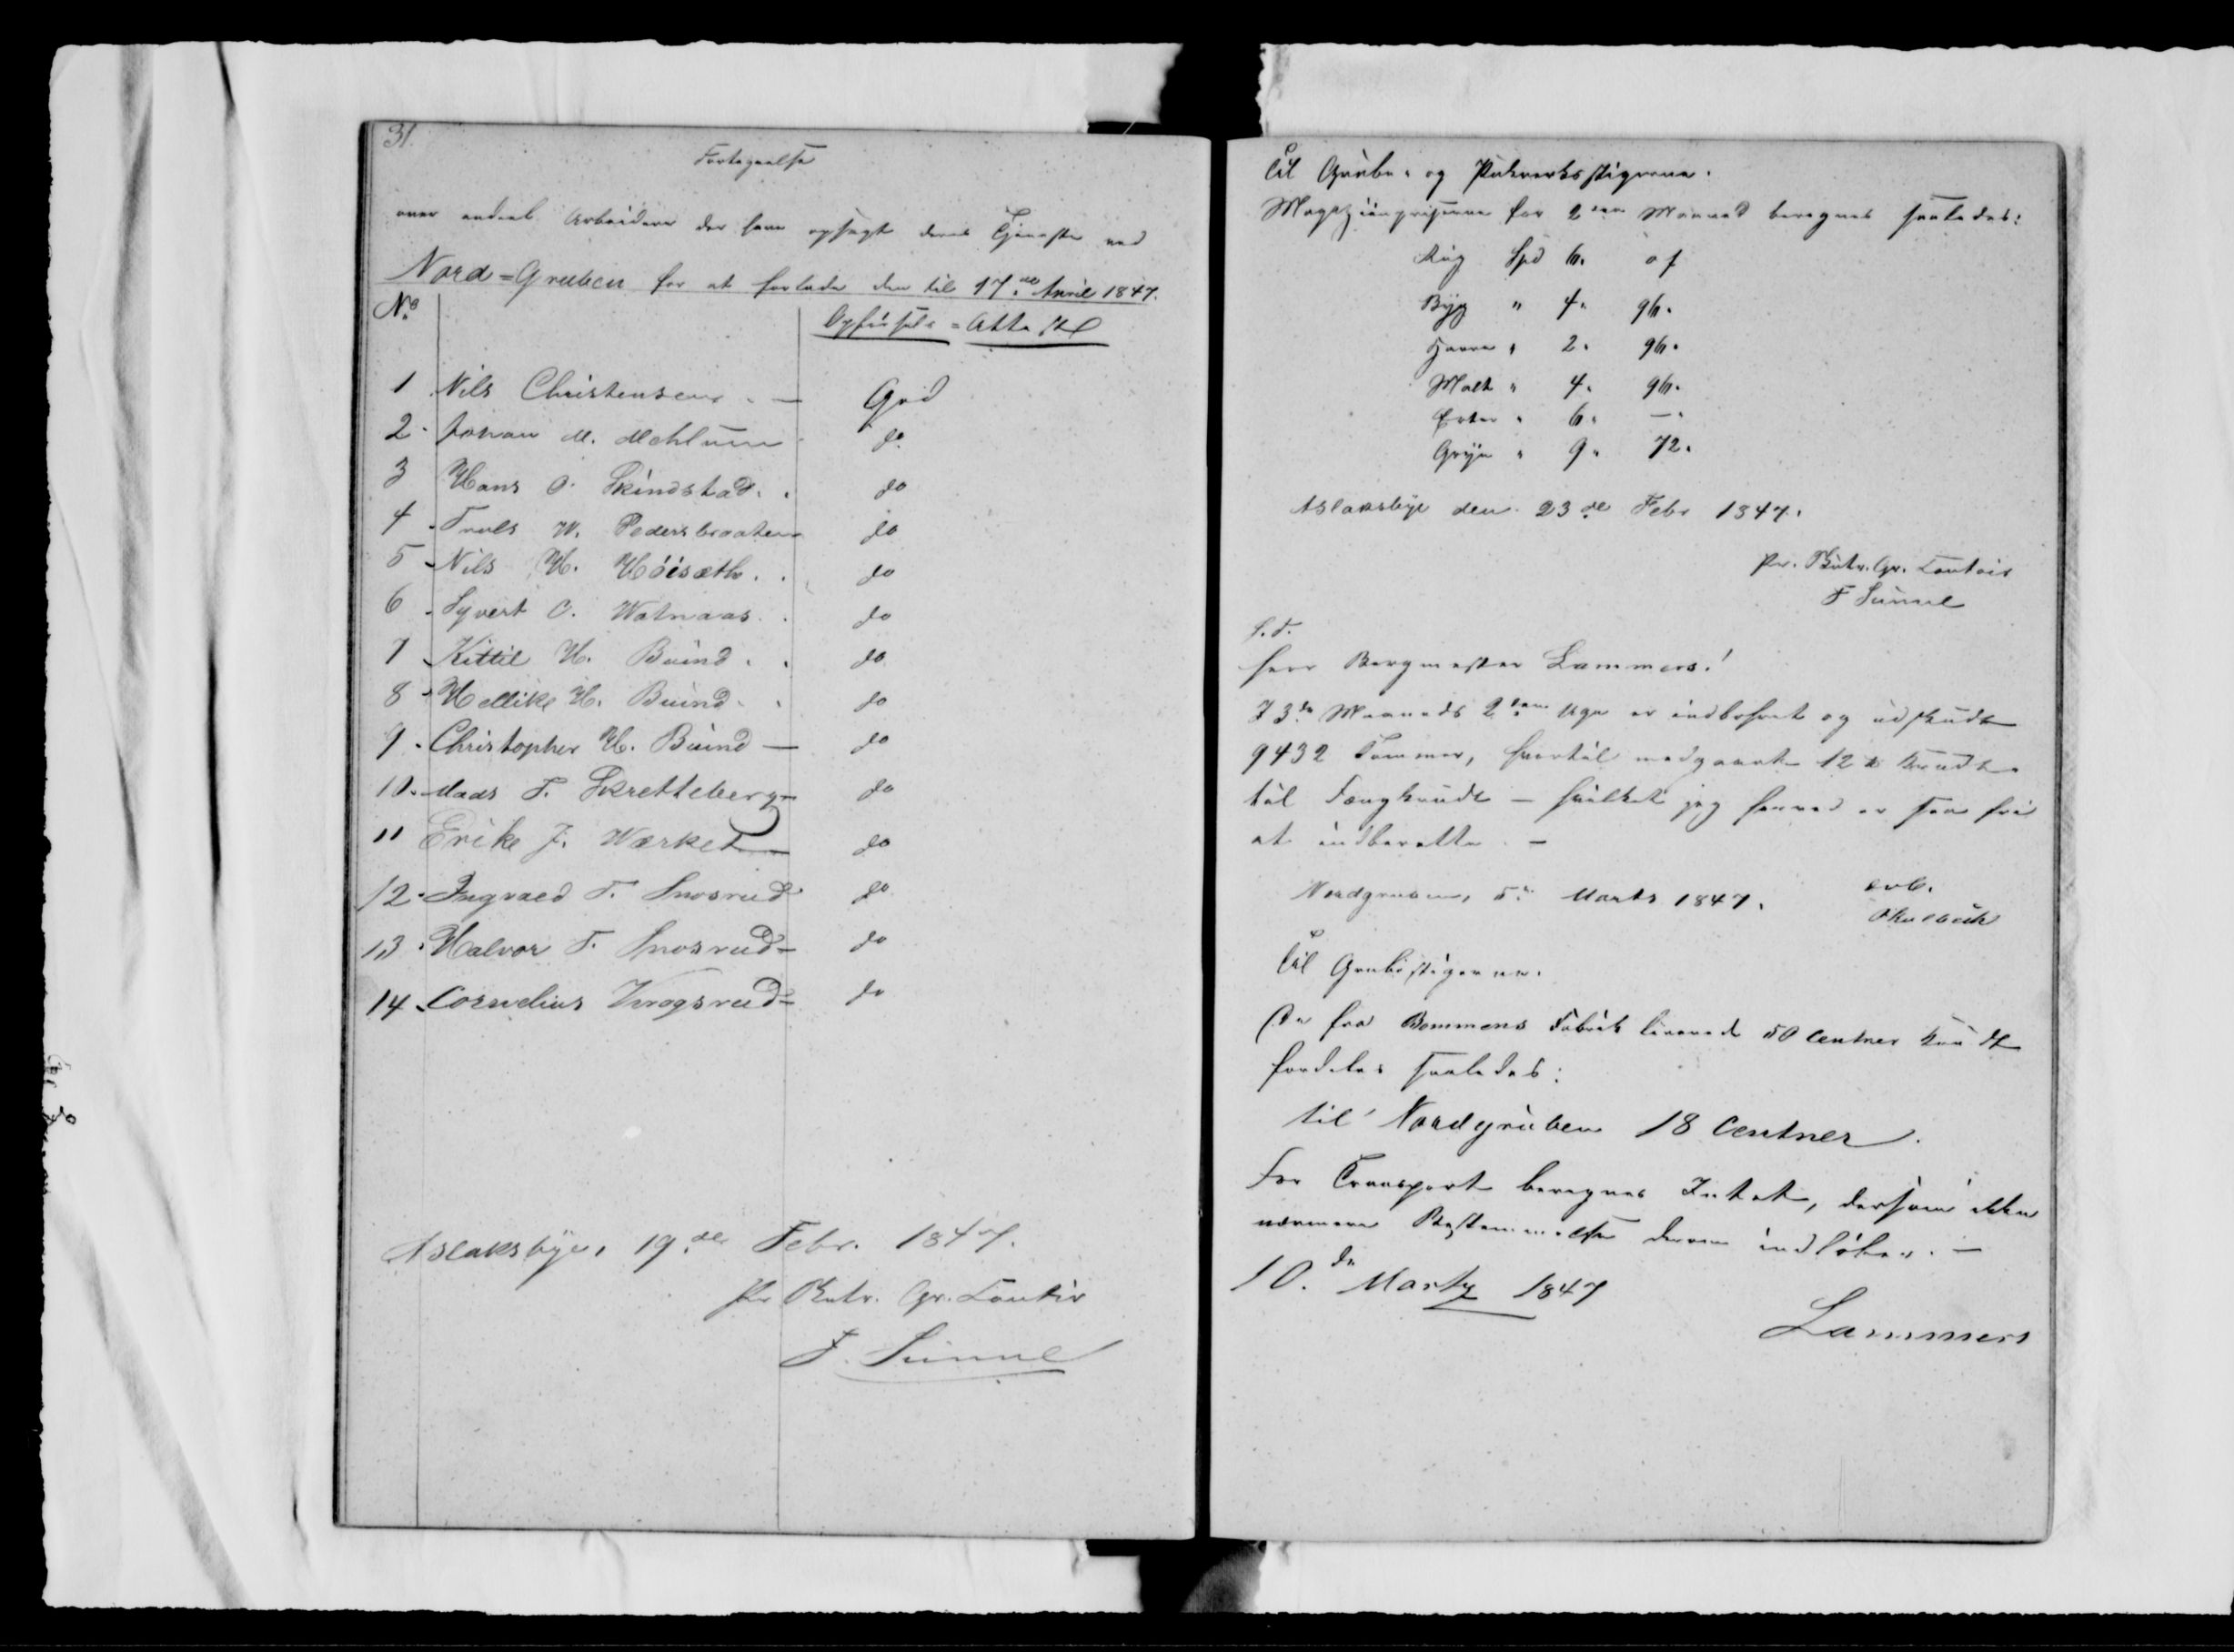 31.
Fortegnelse
over endeel Arbeidere der have opsagt deres Tjeneste ved
Nord=Gruben for at forlade den til 17de April 1847.
No
Opførsels=Attest
1 Nils Christensen. — God
2. Johan M. Mehlum do
3 Hans O. Skindstad. . do
4. Truls N. Pedersbraaten do
5. Nils H. Höisæth. . do
6. Syvert O. Watnaas. . do
7. Kittil H. Buind. . do
8. Hellike H. Buind. . do
9. Christopher H. Buind — do
10. Mads F. Skretteberg do
11 Erike J. Wærket — do
12. Ingvald T. Snosrud do
13. Halvor T. Snosrud do
14. Cornelius Krogsrud do
Aslaksbye, 19de Febr. 1847.
pr. Gr. Contoir
F. Sunne
Til Grube- og Pukverksstigerne.
Magaziinpriserne for 2den Maaned beregnes saaledes:
Rug Spd 6. of
Byg " 4. 96.
Havre " 2. 96.
Malt " 4. 96.
Erter " 6. —.
Gryn " 9. 72.
Aslaksbye den 23de Febr 1847.
pr. Gr. Contoir
F Sunne
S. T.
Herr Bergmester Lammers!
I 3de Maaneds 2den Uge er indboret og udskudt
9432 Tommer, hvortil medgaaet 12 ℔ Krudt
til Fængkrudt — hvilket jeg herved er saa fri
at indberette. —
Nordgruben, 5te Marts 1847.
ærb.
Til Grubestigerne.
De fra Bommens Fabrik leverede 50 Centner Krudt
fordeles saaledes:
til Nordgruben 18 Centner.
For Transport beregnes Intet, dersom ikke
nærmere Bestemmelse derom indløber. —
10. de Martz 1847
Lammers